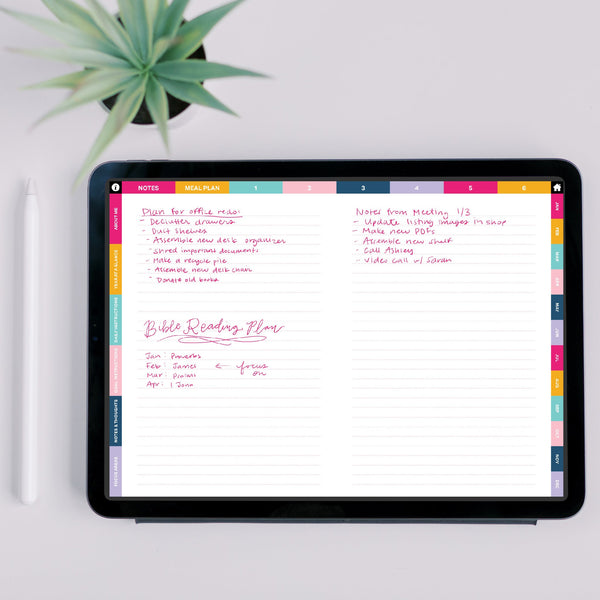 NOTES MEAL PLAN 1 2 3 4 5 6
ABOUT ME
YEAR AT A GLANCE
NOTES & THOUGHTS
FOCUS AREAS
Plan for office redo:
- Declutter drawers
- Dust shelves
- Assemble new desk organizer
- Shred important documents
- Make a recycle pile
- Assemble new desk chair
- Donate old books
Bible Reading Plan
Jan: Proverbs
Feb: James ← focus on
Mar: Psalms
Apr: 1 John
Notes from Meeting 1/3
- Update listing images in shop
- Make new PDFs
- Assemble new shelf
- Call Ashley
- Video call w/ Sarah
JAN
FEB
MAR
APR
MAY
JUN
JUL
AUG
SEP
OCT
NOV
DEC